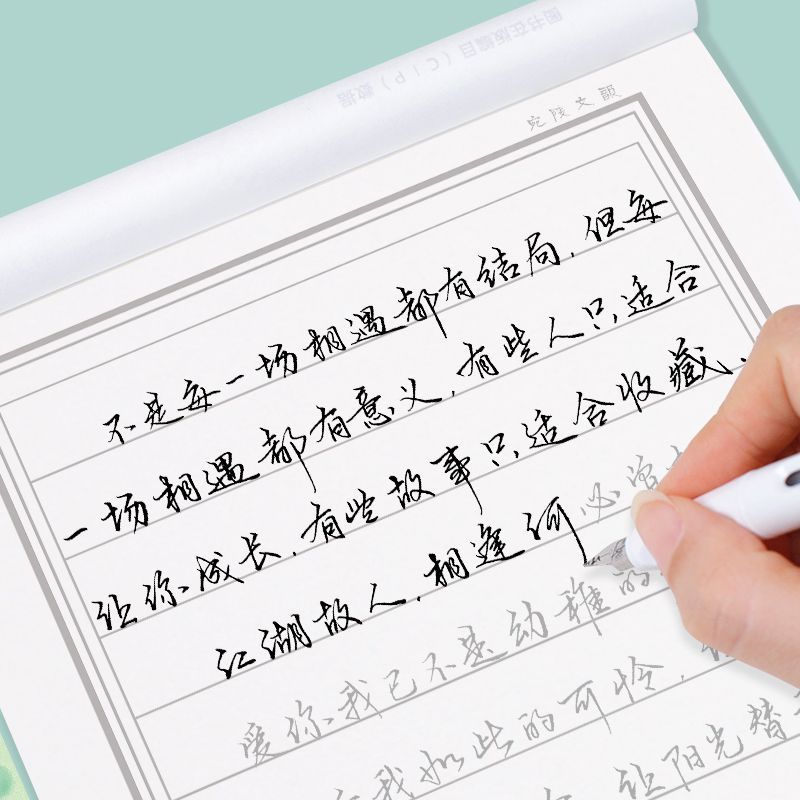 图书在版编目（CIP）数据
宛陵文韻
不是每一场相遇都有结局，但每
一场相遇都有意义，有些人只适合
让你成长，有些故事只适合收藏，
江湖故人，相逢何必曾
爱你我已不是幼稚的
我如此的可怜，
让阳光替